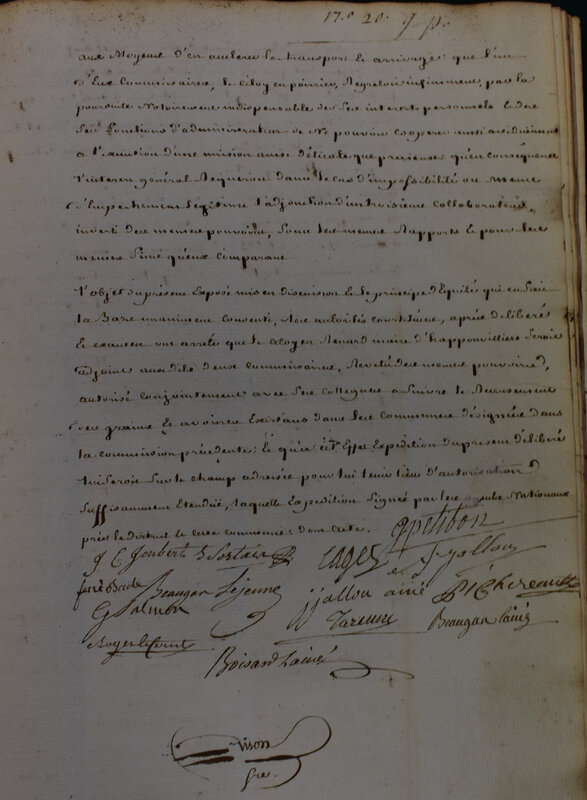 aux Moyens d'en accelerer le transport et arrivage: que l'un
d'Eux Commissaires, le Citoyen poirrier, Regretoit infiniment, par la
poursuite Notoirement indispensable de Ses interets personnels et de
Ses fonctions d'administrateur de Ne pouvoir Cooperer aussi assiduement
a l'Execution d'une mission aussi délicate que precieuse: qu'en conséquence
l'interet général Requeroit dans le cas d'impossibilité ou meme
d'Empechement légitime l'adjonction d'un troisieme Collaborateur
investi des memes pouvoirs, sous les memes Rapports et pour les
memes fins qu'eux comparant
l'objet du présent Exposé mis en discussion Et le principe d'Equité qui en fait
la Baze unanimement consenti, Nos autorités constituées, après deliberé
Et examen ont arreté que le Citoyen Renard maire d'happonvilliers Seroit
adjoint aux dits deux commissaires, Revetu des memes pouvoirs,
autorisé conjointement avec Ses Collegues a Suivre le Recensement
des grains Et avoines Existans dans les Communes désignées dans
la commission précédente: Et qu'à cet Effet Expedition du present déliberé
lui Seroit Sur le champ adressée pour lui tenir lieu d'autorisation
Suffisamment Etendue, laquelle Expedition Signée par les Nationaux
près le district et cette commune: dont acte.
J C Joubert
Lejeune
G Salmon
Jallou ainé
petibon
Jallou
Tareune
Beaugar lainé
Boisard lainé
vison
gre.